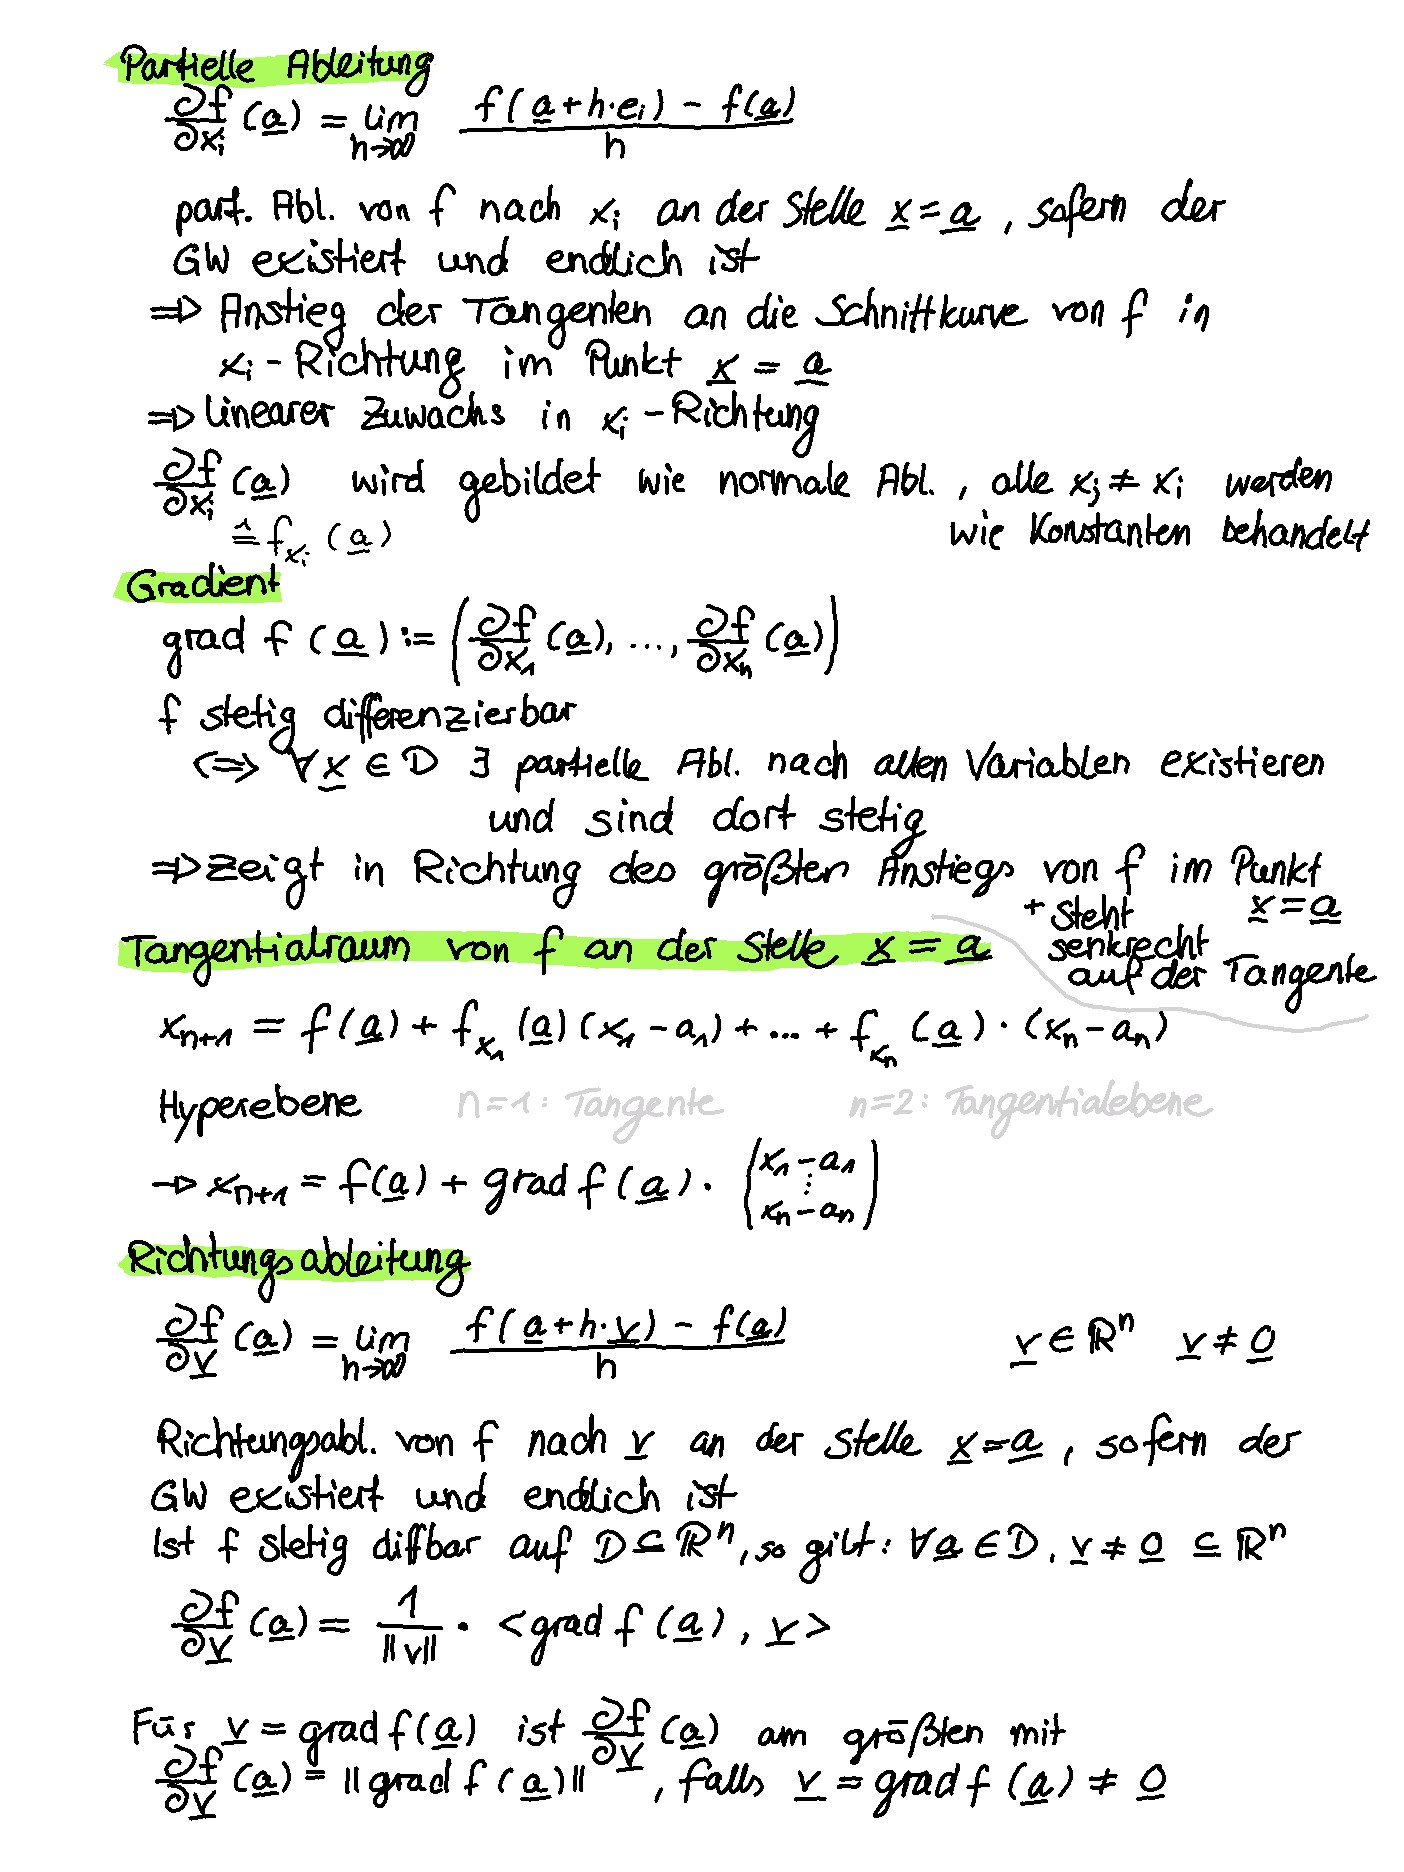 Partielle Ableitung
∂f/∂xᵢ (a) = lim h→∞ f(a+h·eᵢ) − f(a) / h
part. Abl. von f nach xᵢ an der Stelle x = a , sofern der
GW existiert und endlich ist
⇒ Anstieg der Tangenten an die Schnittkurve von f in
xᵢ - Richtung im Punkt x = a
⇒ linearer Zuwachs in xᵢ - Richtung
∂f/∂xᵢ (a) wird gebildet wie normale Abl. , alle xⱼ ≠ xᵢ werden
wie Konstanten behandelt
≙ f_xᵢ (a)
Gradient
grad f (a) := (∂f/∂x₁ (a), ..., ∂f/∂xₙ (a))
f stetig differenzierbar
⇔ ∀ x ∈ D ∃ partielle Abl. nach allen Variablen existieren
und sind dort stetig
⇒ zeigt in Richtung des größten Anstiegs von f im Punkt
x = a
+ steht
senkrecht
auf der Tangente
Tangentialraum von f an der Stelle x = a
xₙ₊₁ = f(a) + f_x₁ (a) (x₁ − a₁) + ... + f_xₙ (a) · (xₙ − aₙ)
Hyperebene n=1: Tangente n=2: Tangentialebene
→ xₙ₊₁ = f(a) + grad f (a) · (x₁ − a₁ ⋮ xₙ − aₙ)
Richtungsableitung
∂f/∂v (a) = lim h→∞ f(a+h·v) − f(a) / h v ∈ ℝⁿ v ≠ 0
Richtungsabl. von f nach v an der Stelle x = a , sofern der
GW existiert und endlich ist
Ist f stetig diffbar auf D ⊆ ℝⁿ, so gilt: ∀ a ∈ D, v ≠ 0 ⊆ ℝⁿ
∂f/∂v (a) = 1/||v|| · <grad f (a) , v>
Für v = grad f(a) ist ∂f/∂v (a) am größten mit
∂f/∂v (a) = ||grad f (a)|| , falls v = grad f (a) ≠ 0